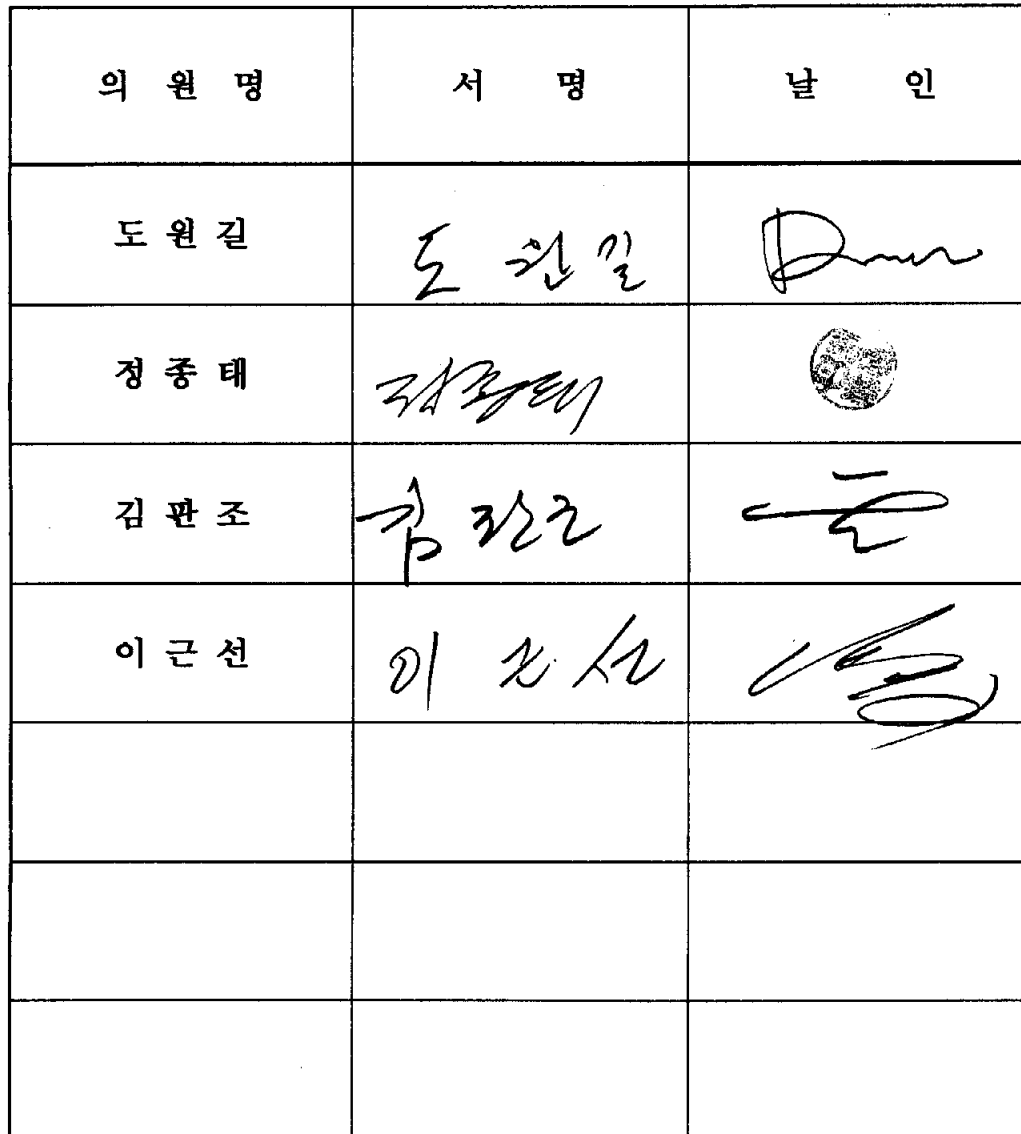 의 원 명 서 명 날 인
도 원 길 도 원 길
정 종 태 정종태
김 판 조 김 판조
이 근 선 이 근 선